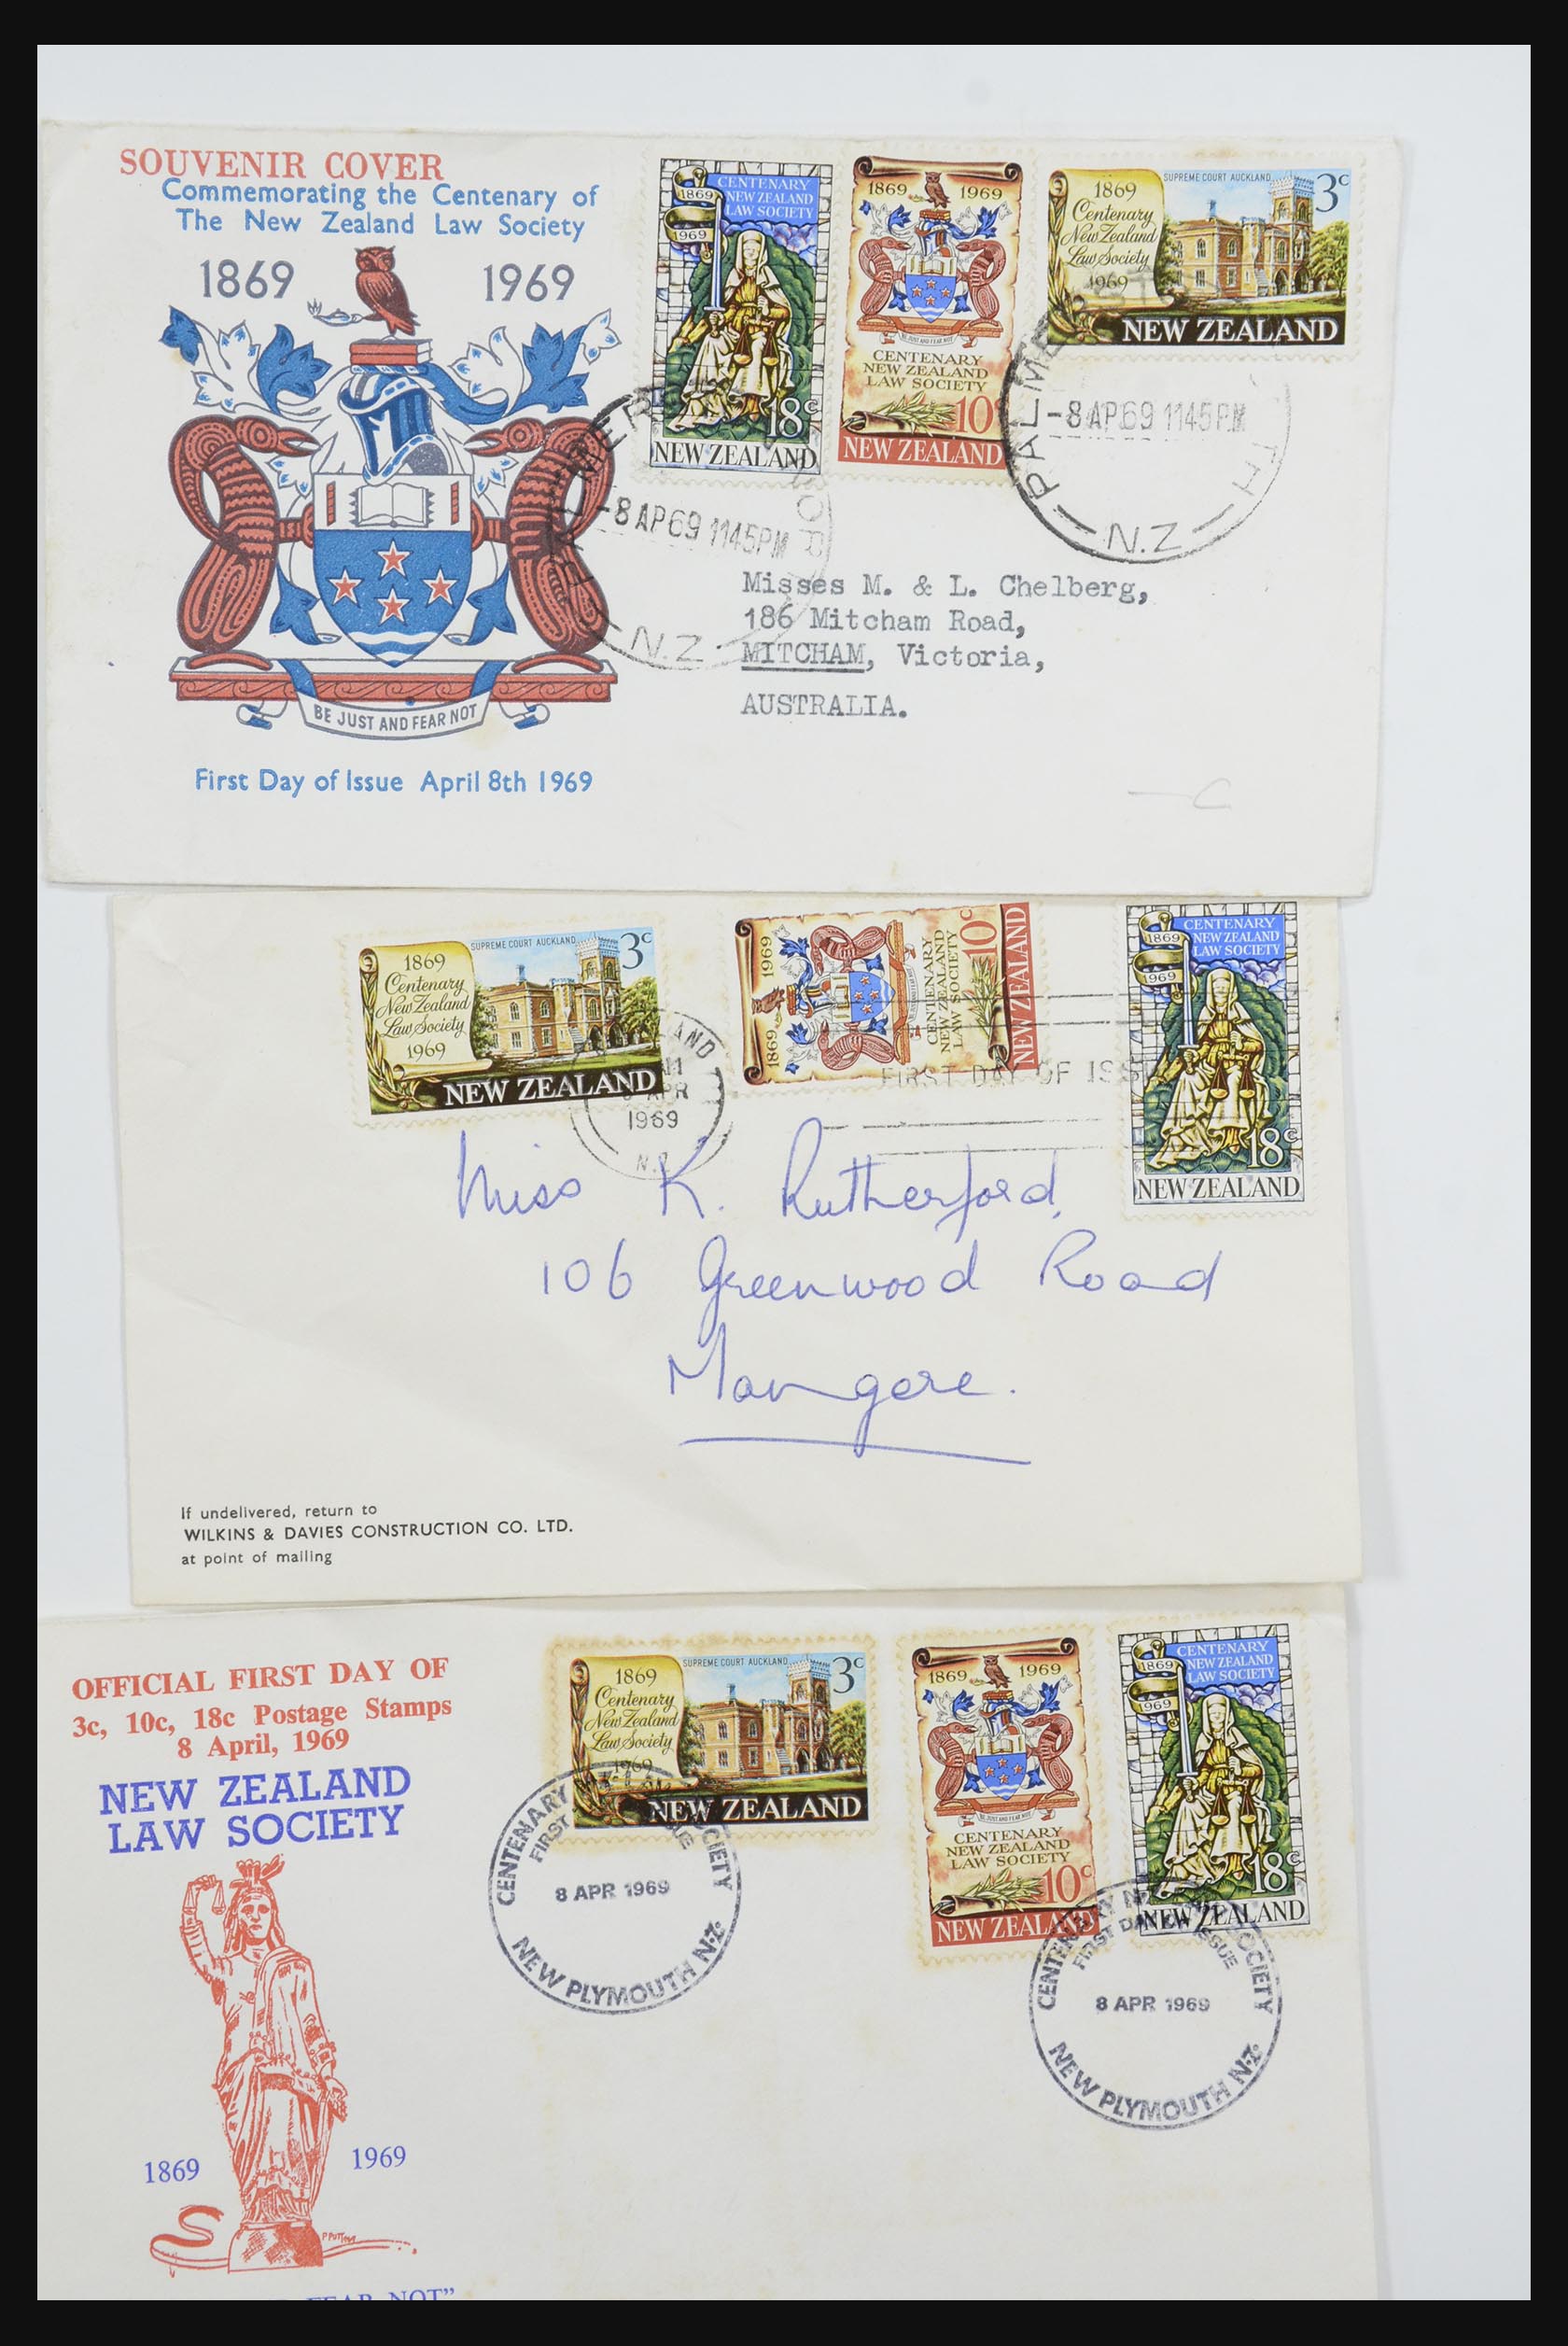 SOUVENIR COVER
Commemorating the Centenary of
The New Zealand Law Society
1869 1969
BE JUST AND FEAR NOT
First Day of Issue April 8th 1969
CENTENARY
1869 NEW ZEALAND
LAW SOCIETY
1969
18c
NEW ZEALAND
1869 1969
BE JUST AND FEAR NOT
CENTENARY
NEW ZEALAND
LAW SOCIETY
10c
NEW ZEALAND
SUPREME COURT AUCKLAND 3c
1869
Centenary
New Zealand
Law Society
1969
NEW ZEALAND
-8 AP69 1145PM
N.Z
-8 AP69 1145PM
N.Z
Misses M. & L. Chelberg,
186 Mitcham Road,
MITCHAM, Victoria,
AUSTRALIA.
SUPREME COURT AUCKLAND 3c
1869
Centenary
New Zealand
Law Society
1969
NEW ZEALAND
1869 1969
CENTENARY
NEW ZEALAND
LAW SOCIETY
10c
NEW ZEALAND
CENTENARY
1869 NEW ZEALAND
LAW SOCIETY
1969
18c
NEW ZEALAND
APR
1969
FIRST DAY OF
Miss K. Rutherford,
106 Greenwood Road
Mangere.
If undelivered, return to
WILKINS & DAVIES CONSTRUCTION CO. LTD.
at point of mailing
OFFICIAL FIRST DAY OF
3c, 10c, 18c Postage Stamps
8 April, 1969
NEW ZEALAND
LAW SOCIETY
1869 1969
FEAR NOT”
SUPREME COURT AUCKLAND 3c
1869
Centenary
New Zealand
Law Society
1969
NEW ZEALAND
1869 1969
BE JUST AND FEAR NOT
CENTENARY
NEW ZEALAND
LAW SOCIETY
10c
NEW ZEALAND
CENTENARY
1869 NEW ZEALAND
LAW SOCIETY
1969
18c
NEW ZEALAND
CENTENARY SOCIETY
FIRST
8 APR 1969
NEW PLYMOUTH N.Z.
CENTENARY SOCIETY
FIRST DAY OF ISSUE
8 APR 1969
NEW PLYMOUTH N.Z.